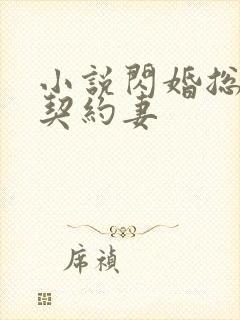 小說閃婚总
契約妻
席禎